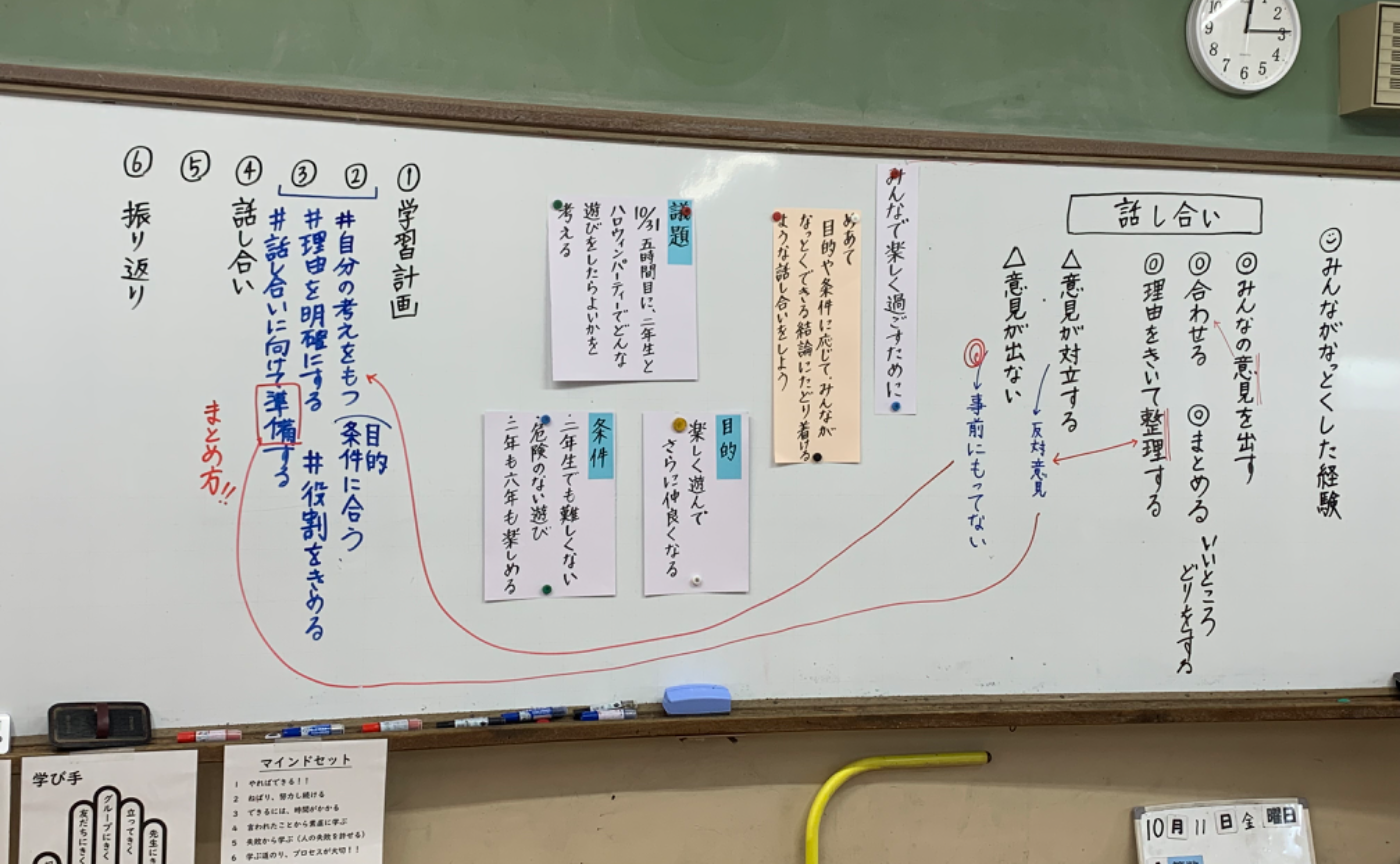 ☺みんながなっとくした経験
話し合い
◎みんなの意見を出す
◎合わせる ◎まとめる
いいところ
どりをする
◎理由をきいて整理する
△意見が対立する
反対意見
△意見が出ない
事前にもってない
みんなで楽しく過ごすために
めあて
目的や条件に応じて、みんなが
なっとくできる結論にたどり着ける
ような話し合いをしよう
議題
10/31 五時間目に、二年生と
ハロウィンパーティーでどんな
遊びをしたらよいかを
考える
目的
楽しく遊んで
さらに仲良くなる
条件
二年生でも難しくない
危険のない遊び
二年も六年も楽しめる
①学習計画
②
#自分の考えをもつ
(目的
条件に合う
③
#理由を明確にする #役割をきめる
#話し合いに向けて準備する
まとめ方!!
④話し合い
⑤
⑥振り返り
10 1 2 3 4 5 6 7 8 9
学び手
友だちにきく
グループにきく
立ってきく
先生にき
マインドセット
1 やればできる!!
2 ねばり、努力し続ける
3 できるには、時間がかかる
4 言われたことから素直に学ぶ
5 失敗から学ぶ(人の失敗を許せる)
6 学ぶ道のり、プロセスが大切!!
10月11日金曜日